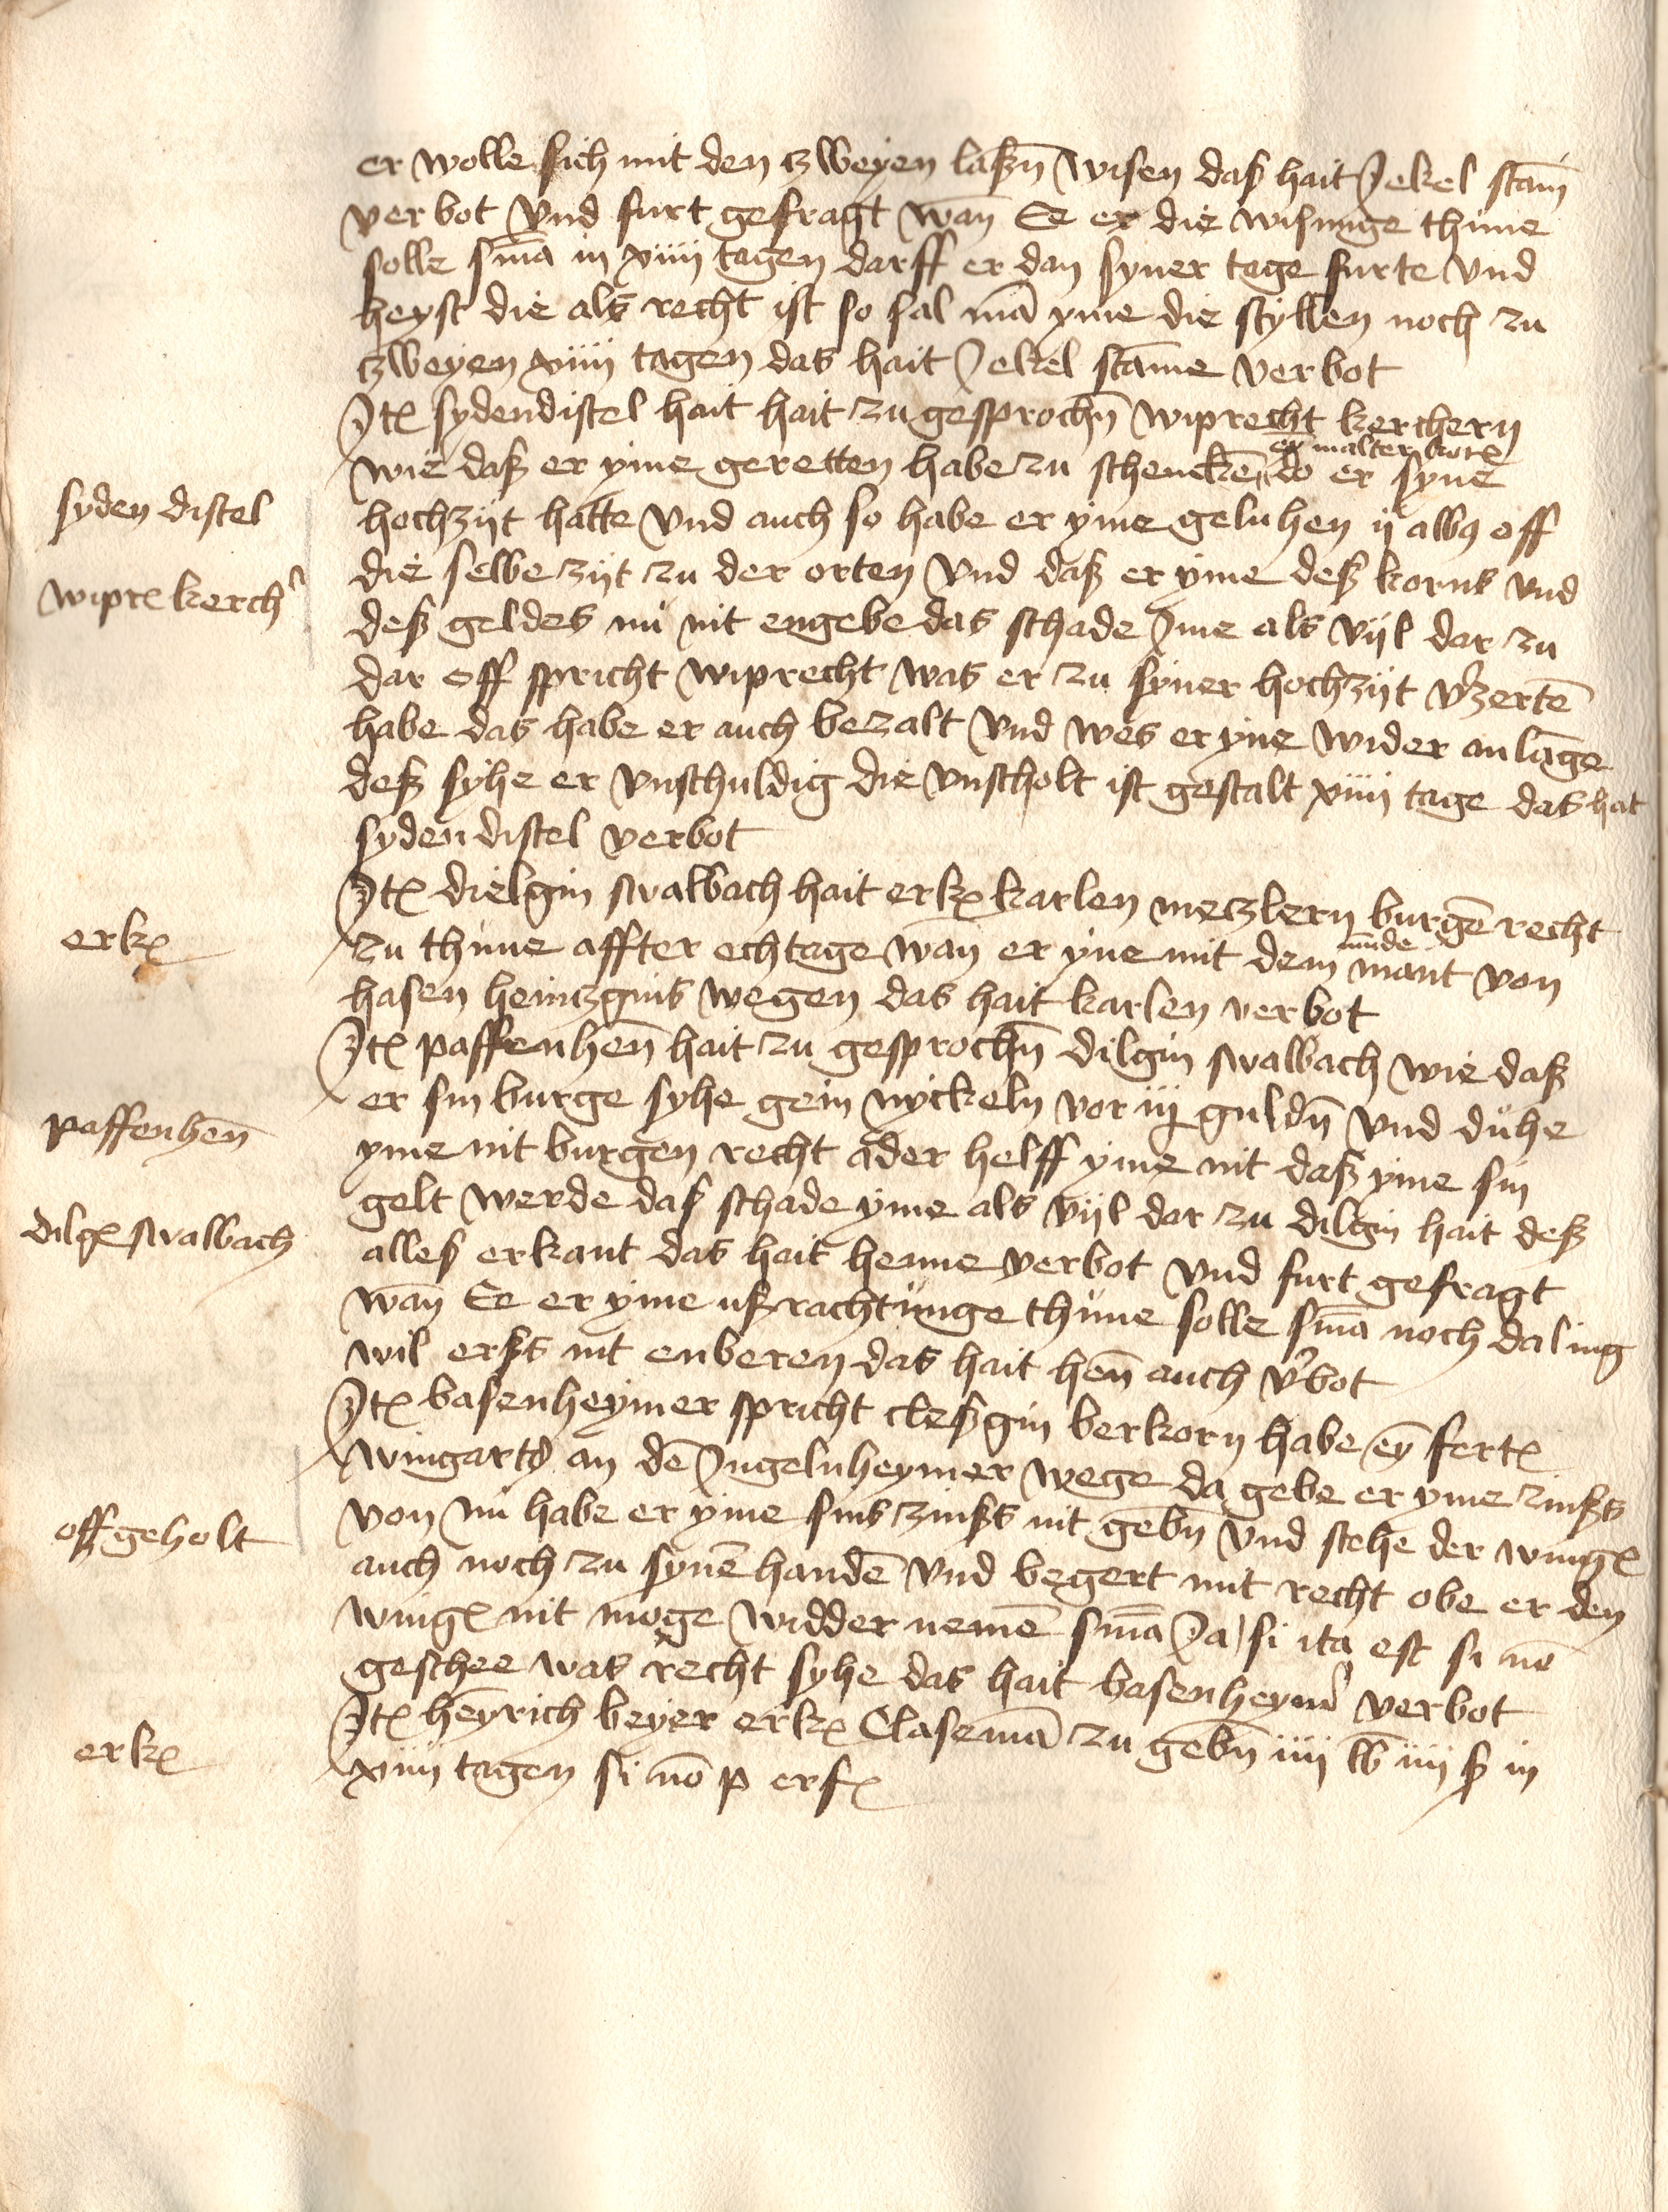 er wolle sich mit den zweyen laßn̄ wisen das hait Jekel stam̄
verbot vnd furt gefragt wan̄ Ee er die wisunge thune
solle sm̄a in xiiii tagen darff er dan syner tage furte vnd
heyst die als recht ist so sal mā yme die styllen noch zu
zweyen xiiii tagen das hait Jekel stam̄e verbot
Jt(em) sydendistel hait hait zu gesprochn̄ wiprecht kerchern
wie daß er yme geretten habe zu schencken̄ do er syne
ey malter korn
syden distel
hochzijt hatte vnd auch so habe er yme geluhen ij alb(us) off
die selbe zijt zu der orten vnd daß er yme deß korns vnd
wipr(echt) kerch(er)
deß geldes nů nit engebe das schade Jme als vijl dar zu
dar off spricht wiprecht was er zu syner hochzijt v(er)zertē
habe das habe er auch bezalt vnd wes er yne wider anlāge
deß syhe er vnschuldig die vnscholt ist gestalt xiiii tage das hat
syden distel verbot
Jt(em) dielgin swalbach hait erk(ant) karlen meczlern burgē recht
erk(ant)
zu thune affter echtage wan er yne mit dem mant von
mūde
hasen heinczgins wegen das hait karlen verbot
Jt(em) paffenhen̄ hait zu gesprochn̄ dilgin swalbach wie daß
er sin burge syhe gein nyckeln vor iij guldn̄ vnd důhe
paffenhen̄
yme nit burgen recht ader helff yme nit daß yme sin
gelt werde das schade yme als vijl dar zu dilgin hait deß
dilg(in) swalbach
alles erkant das hait henne verbot vnd furt gefragt
wan̄ Ee er yme ußrachtunge thune solle sm̄a noch daling
wil erßs nit enberen das hait hen̄ auch v(er)bot
Jt(em) basenheymer spricht cleßgin berkorn habe ey̅ fert(el)
wingarts an dē Jngelnheymer wege da gebe er yme zinßs
von nů habe er yme sins zinßs nit gebn̄ vnd stehe der wing(art)
offgeholt
auch noch zu synē handē vnd begert mit recht obe er den
wing(art) nit moge widder nemē sm̄a Ja si ita est si nō
geschee was recht syhe das hait basenheym(er) verbot
Jt(em) heyrich beyer erk(ant) Clasemā zu gebn̄ iiii lb iiii ß in
erk(ant)
xiiii tagen si nō p erf(olgt)